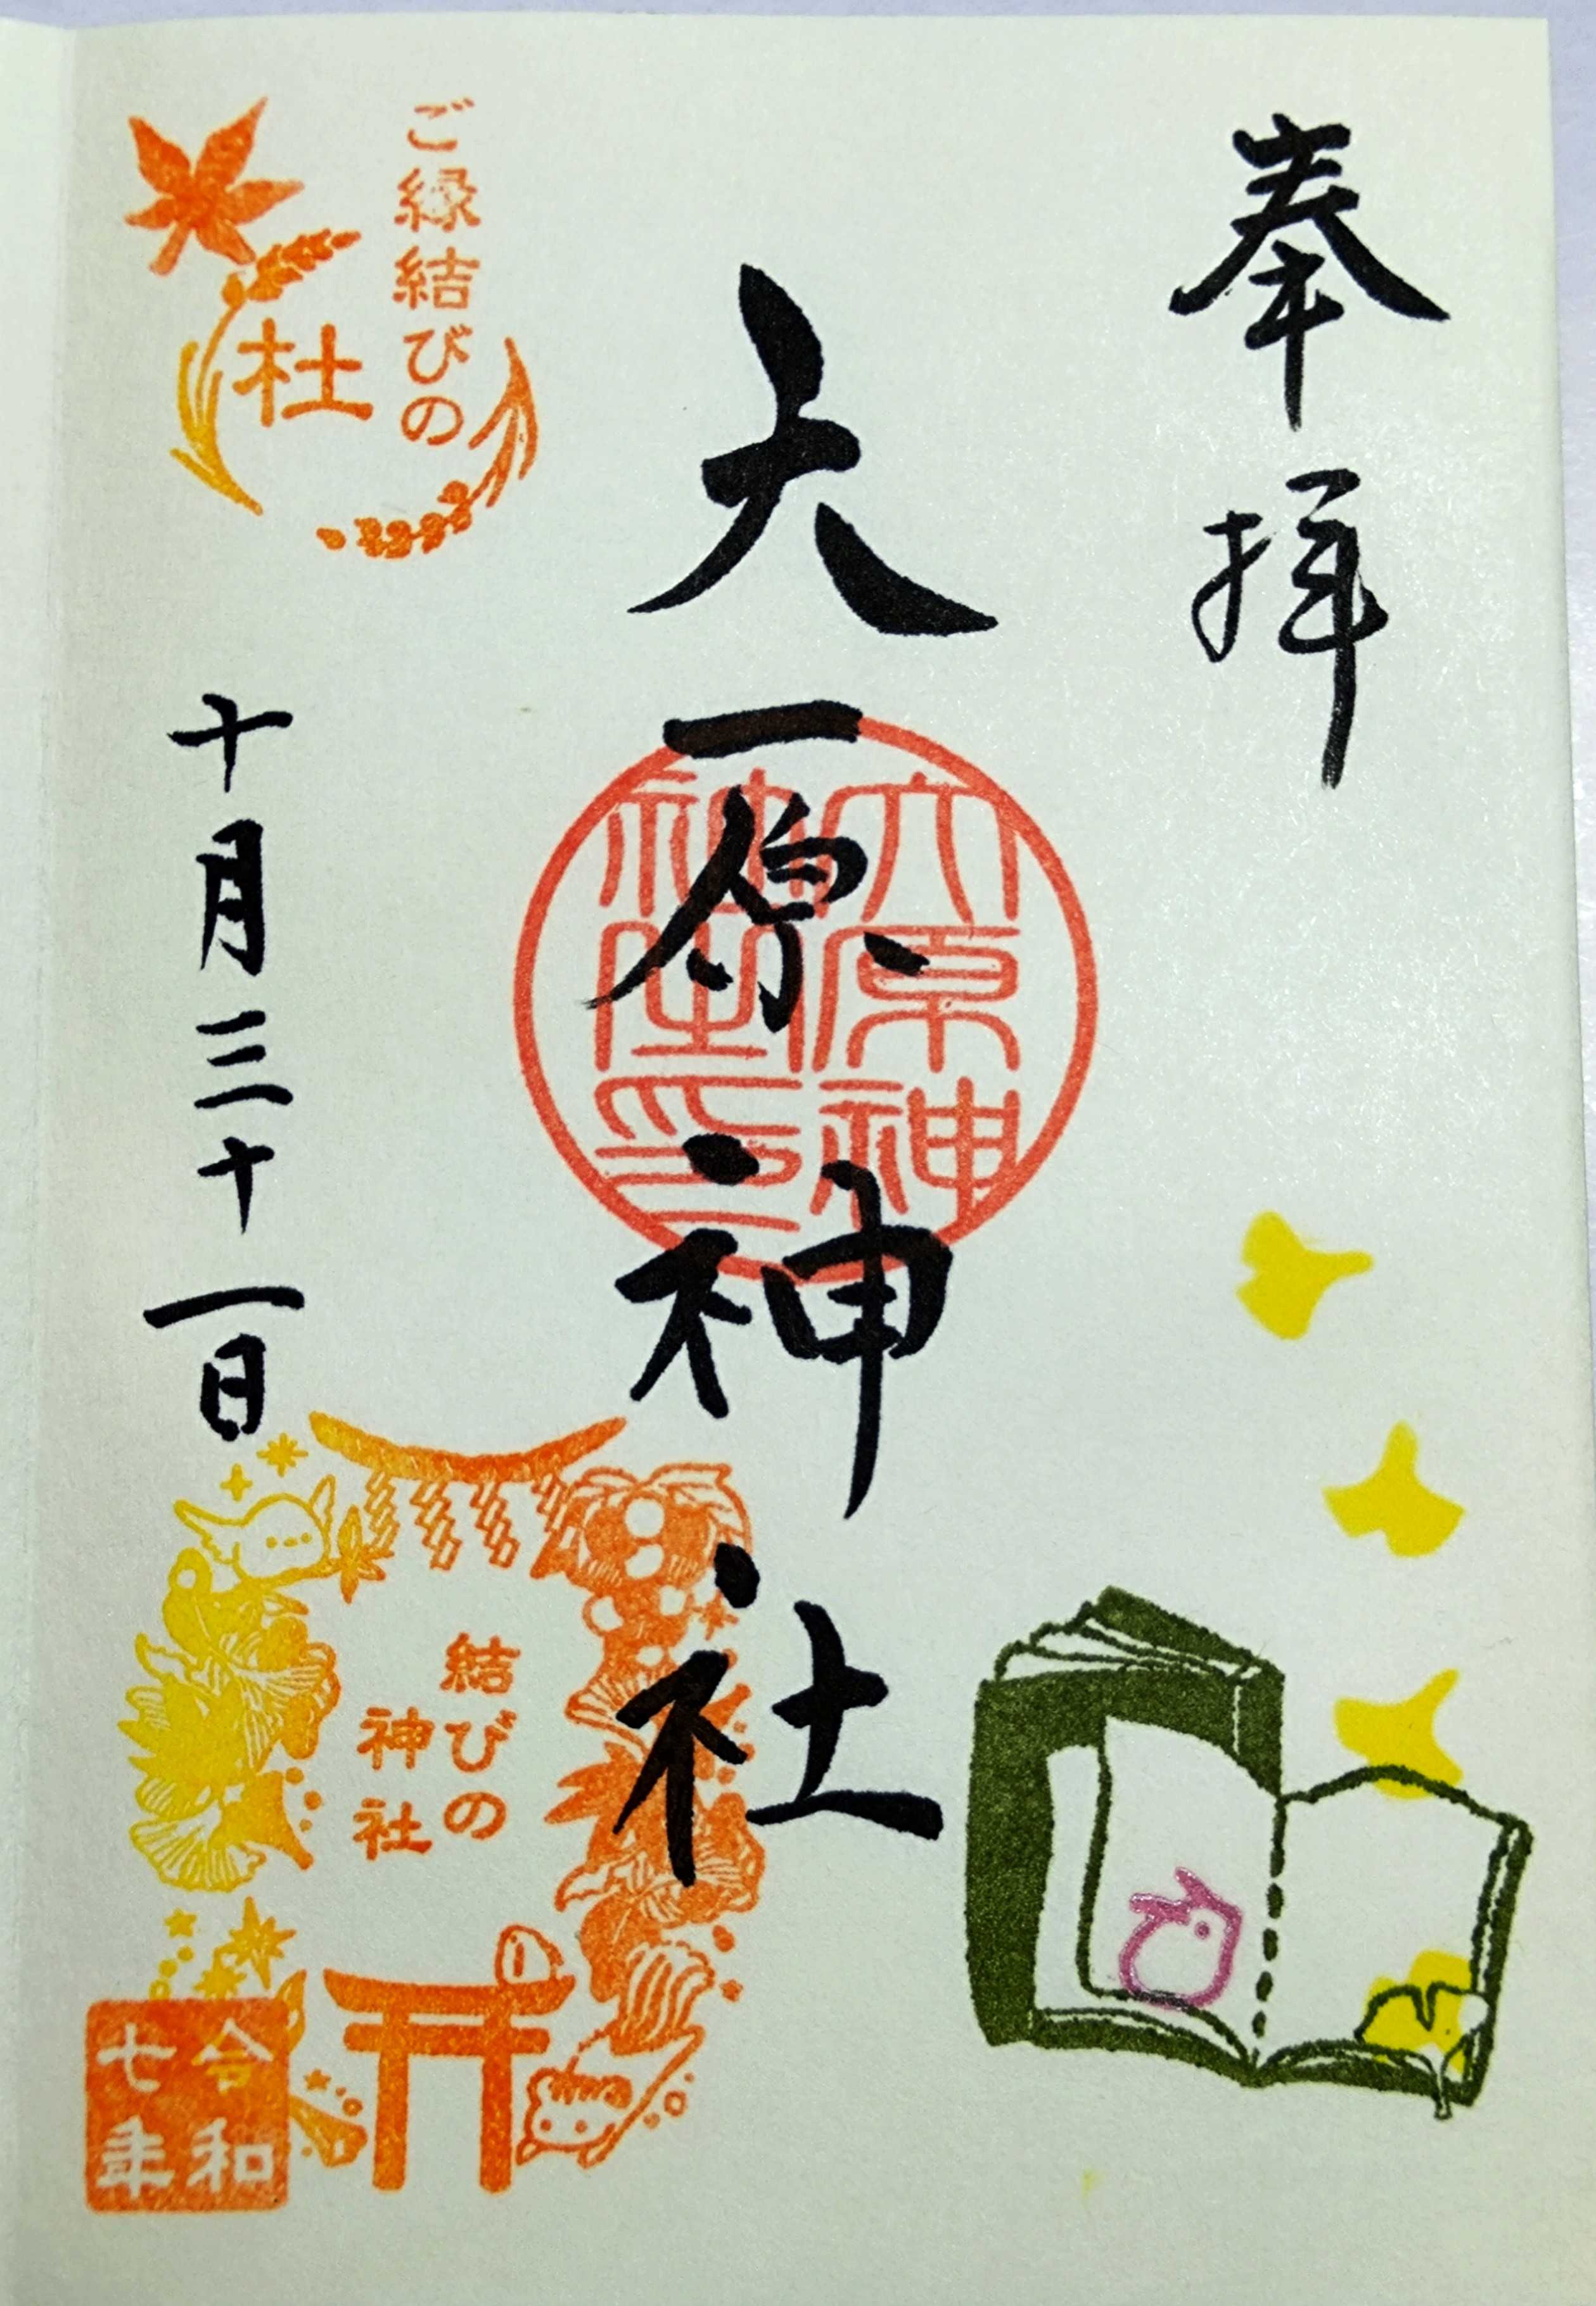 奉拝
大原神社
大原神
社之印
ご縁結びの
杜
十月三十一日
結びの
神社
令和
七年